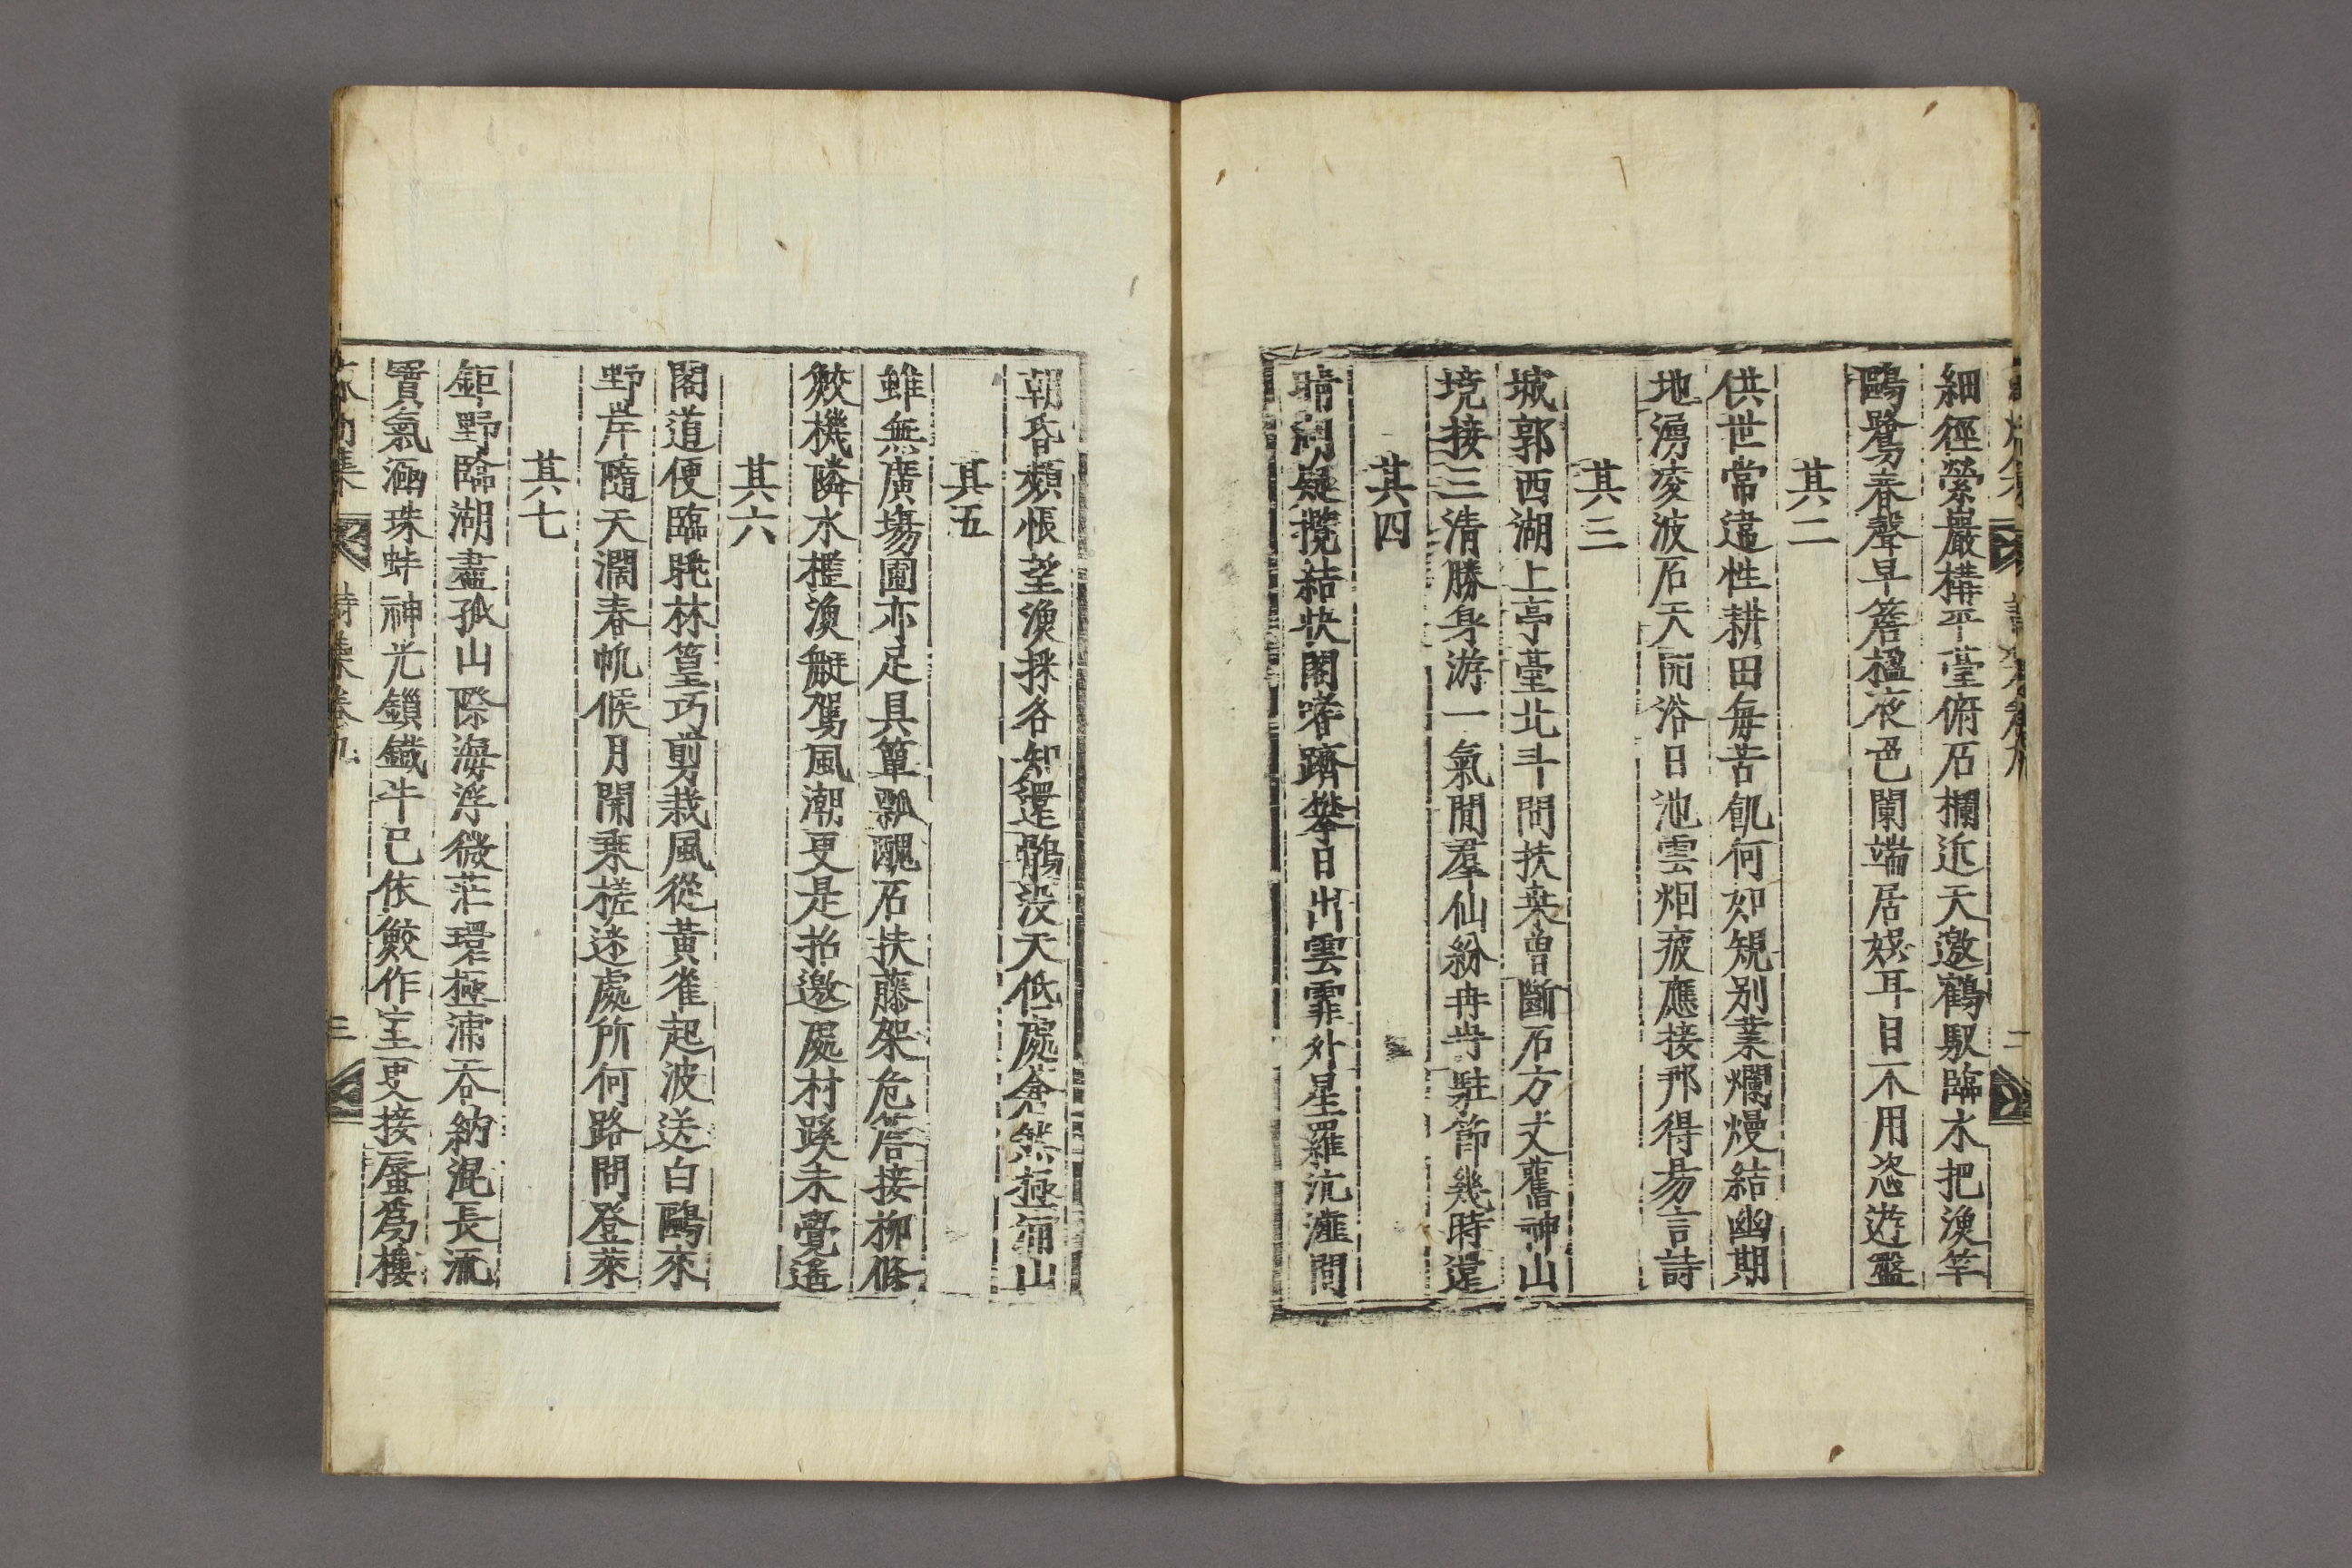 細徑縈巖構平臺俯石欄近天邀鶴馭臨水把漁竿
鷗鷺春聲早簷楹夜色闌端居娛耳目不用恣遊盤
其二
供世常違性耕田每苦飢何如規別業爛熳結幽期
地湧凌波石天開浴日池雲烟疲應接那得易言詩
其三
城郭西湖上亭臺北斗間扶桑曾斷石方丈舊神山
境接三清勝身游一氣閒羣仙紛冉冉駐節幾時還
其四
晴洞疑攬結快閣嗜躋攀日出雲霏外星羅沆瀣間
朝昏頻悵望漁採各知還鶻沒天低處蒼然極浦山
其五
雖無廣場圃亦足具簞瓢醜石扶藤架危簷接柳條
鮫機隣水檻漁艇駕風潮更是招邀處村蹊未覺遙
其六
閣道便臨眺林篁巧剪栽風從黃雀起波送白鷗來
野岸隨天濶春帆候月開乘槎迷處所何路問登萊
其七
鉅野臨湖盡孤山際海浮微茫環極浦吞納混長流
寶氣涵珠蚌神光鎖鐵牛已依鮫作室更接蜃爲樓
集 詩集卷九 三